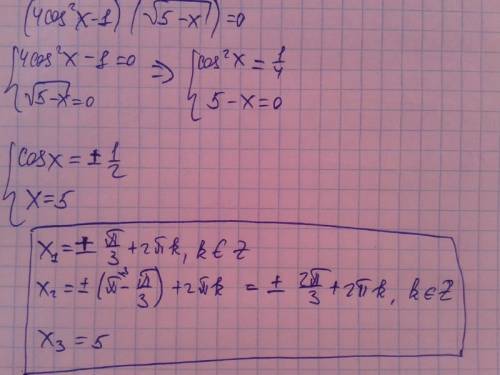 (4cos²x-1) (√5-x) = 0
{ 4cos²x-1=0 ⇒ { cos²x = 1/4
√5-x=0 5-x=0
{ cosx = ± 1/2
x=5
x₁ = ± π/3 + 2πk, k∈Z
x₂ = ± (π - π/3) + 2πk = ± 2π/3 + 2πk, k∈Z
x₃ = 5